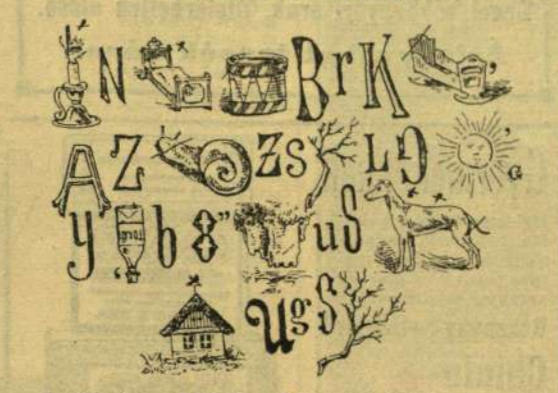 N BrK ,
A Z Zs L , G
y , b 8 " u S
Ü g S